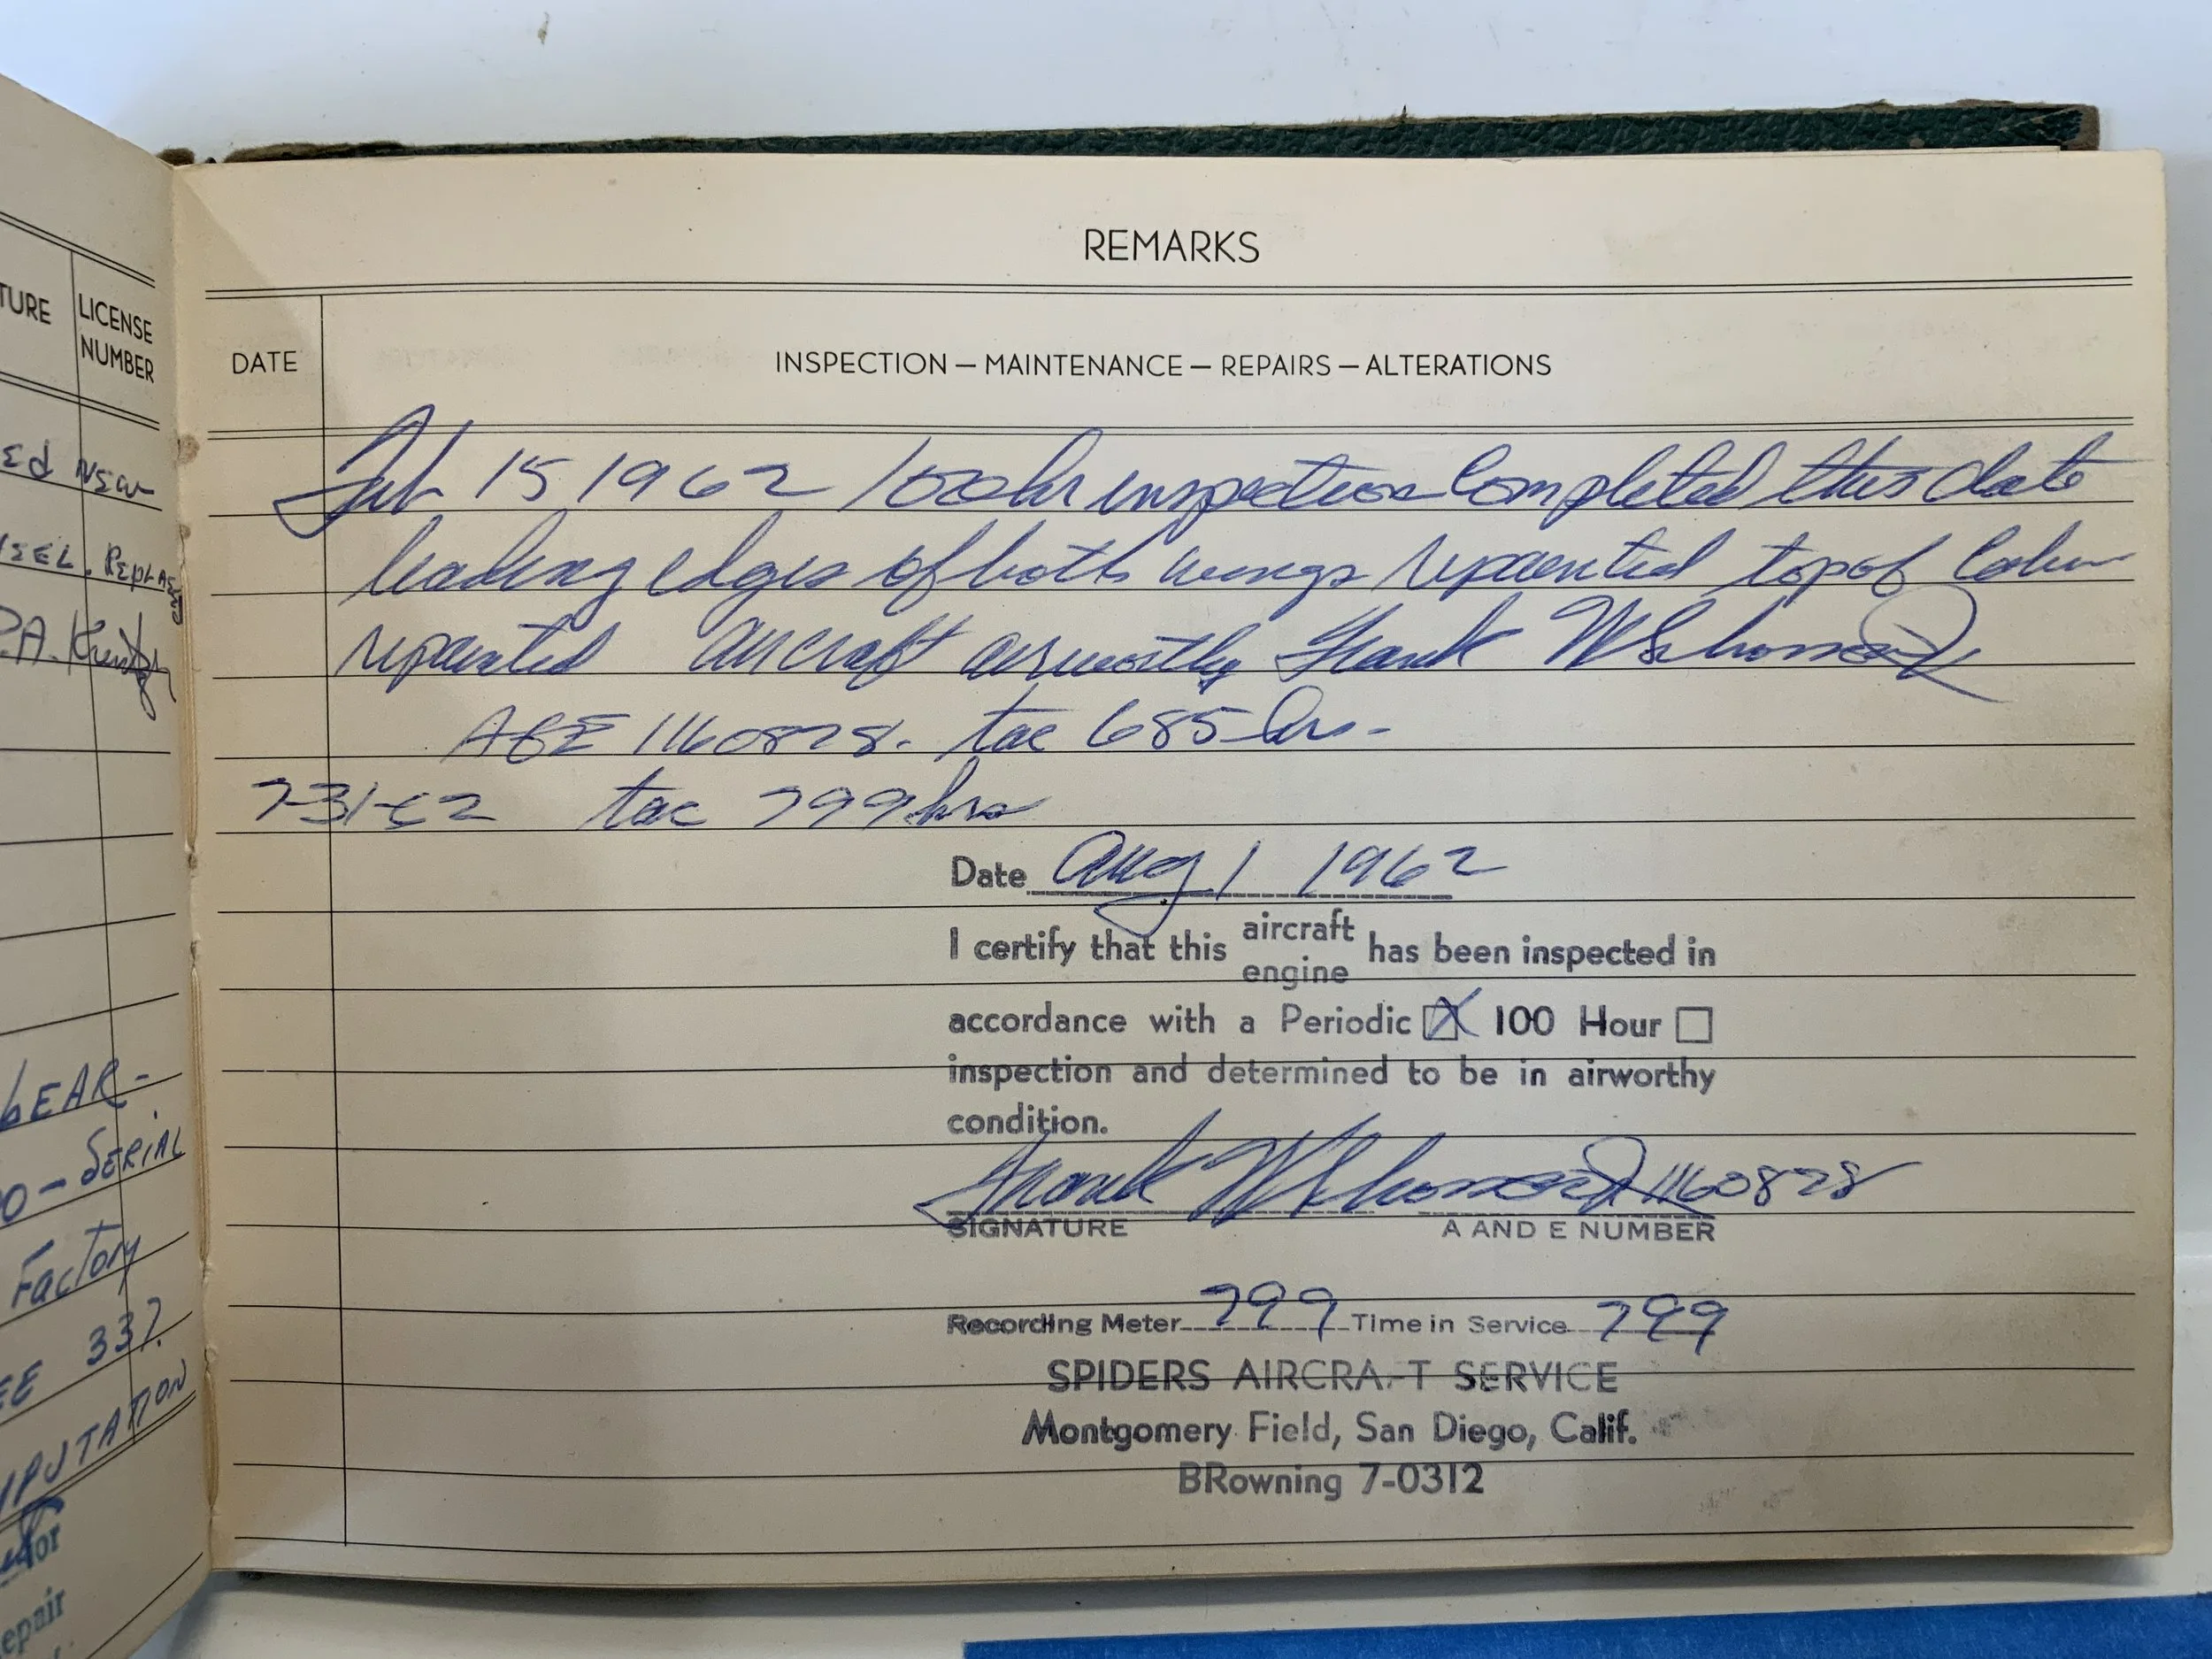 TURE
LICENSE
NUMBER
ED NEW
EEL. REPLAC
P.A.
GEAR -
O - SERIAL
FACTORY
EE 337
UPUTATION
or
epair
REMARKS
DATE
INSPECTION — MAINTENANCE — REPAIRS — ALTERATIONS
Feb 15 1962 100 hr inspection Completed this date
leading edges of both wings repainted top of Cabin
repainted aircraft airworthy Frank W
A&E 1160828. tac 685 hrs.
7-31-62 tac 799 hrs
Date Aug 1 1962
I certify that this aircraft engine has been inspected in
accordance with a Periodic ☒ 100 Hour ☐
inspection and determined to be in airworthy
condition.
Frank W 1160828
SIGNATURE A AND E NUMBER
Recording Meter 799 Time in Service 799
SPIDERS AIRCRAFT SERVICE
Montgomery Field, San Diego, Calif.
BRowning 7-0312